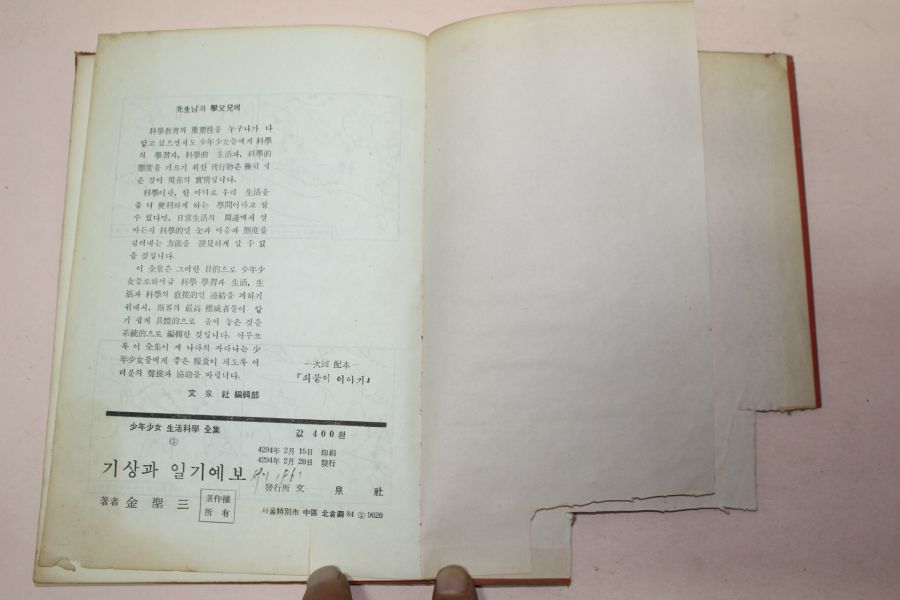 先生님과 學父兄께
科學敎育의 重要性을 누구나가 다
알고 있으면서도 少年少女들에게 科學
의 學習과, 科學的 生活과, 科學的
態度를 기르기 위한 刊行物은 極히 적
은 것이 現在의 實情입니다.
科學이란, 한 마디로 우리 生活을
좀 더 便利하게 하는 學問이라고 할
수 있다면, 日常生活의 周邊에서 얼
마든지 科學的인 눈과 마음과 態度를
길러내는 方法을 發見하게 할 수 있
을 것입니다.
이 全集은 그러한 目的으로 少年少
女들로하여금 科學 學習과 生活, 生
活과 科學의 直接的인 連結을 꾀하기
위해서, 斯界의 最高 權威者들이 알
기 쉽게 具體的으로 풀어 놓은 것을
系統的으로 編輯한 것입니다. 아무쪼
록 이 全集이 새 나라의 자라나는 少
年少女들에게 좋은 糧食이 되도록 여
러분의 聲援과 協助를 바랍니다.
文泉社 編輯部
—次回 配本—
『쇠붙이 이야기』
少年少女 生活科學 全集
③
값 400환
4294年 2月 15日 印刷
4294年 2月 20日 發行
기상과 일기예보
1961
發行所 文泉社
著者 金聖三
著作權
所有
서울特別市 中區 北倉洞 84 ② 9620